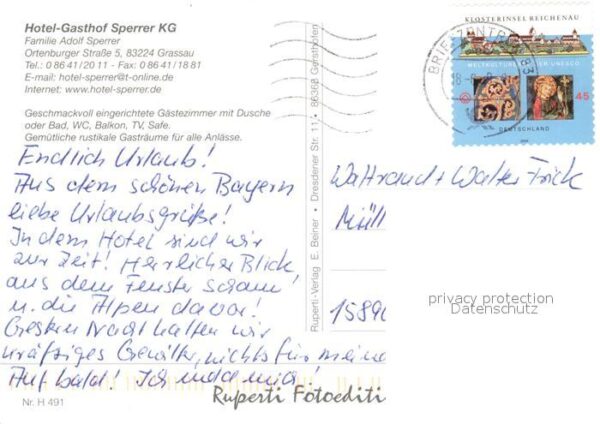 Hotel-Gasthof Sperrer KG
Familie Adolf Sperrer
Ortenburger Straße 5, 83224 Grassau
Tel.: 0 86 41/20 11 - Fax: 0 86 41/18 81
E-mail: hotel-sperrer@t-online.de
Internet: www.hotel-sperrer.de
Geschmackvoll eingerichtete Gästezimmer mit Dusche
oder Bad, WC, Balkon, TV, Safe.
Gemütliche rustikale Gasträume für alle Anlässe.
Endlich Urlaub!
Aus dem schönen Bayern
liebe Urlaubsgrüße!
In dem Hotel sind wir
zur Zeit! Herrlicher Blick,
aus dem Fenster schaun
u. die Alpen davor!
Gestern Nacht hatten wir
kräftiges Gewitter, nichts für meine
Auf bald! Ich und mich!
Nr. H 491
Ruperti Fotoediti
Ruperti-Verlag E. Beiner • Dresdener Str. 11 • 86368 Gersthofen
KLOSTERINSEL REICHENAU
WELTKULTURERBE DER UNESCO
45
DEUTSCHLAND
BRIEFZENTRUM 83
Waltraud + Walter Frick
Müll
15890
privacy protection
Datenschutz